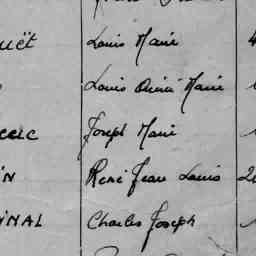 uët Louis Marie 4
Louis Marie
Joseph Marie
IN René Jean Louis 2
INAL Charles Joseph